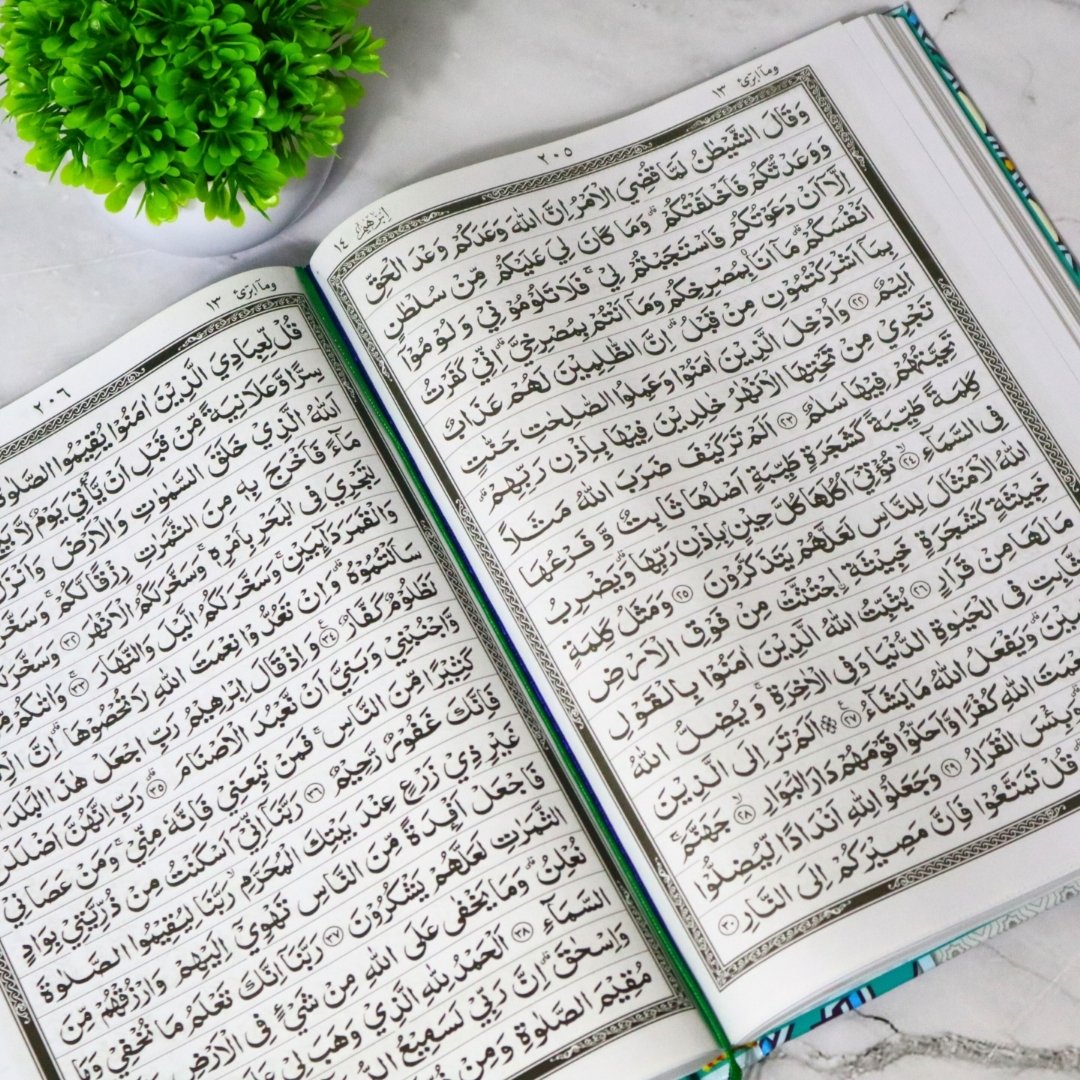 ابرٰهيم ١٤
٢٠٥
ومآ ابرئ ١٣
وَقَالَ الشَّيْطٰنُ لَمَّا قُضِيَ الْاَمْرُ اِنَّ اللّٰهَ وَعَدَكُمْ وَعْدَ الْحَقِّ
وَوَعَدْتُّكُمْ فَاَخْلَفْتُكُمْ ۗ وَمَا كَانَ لِيَ عَلَيْكُمْ مِّنْ سُلْطٰنٍ
اِلَّآ اَنْ دَعَوْتُكُمْ فَاسْتَجَبْتُمْ لِيْ ۚ فَلَا تَلُوْمُوْنِيْ وَلُوْمُوْٓا
اَنْفُسَكُمْ ۗ مَآ اَنَا۠ بِمُصْرِخِكُمْ وَمَآ اَنْتُمْ بِمُصْرِخِيَّ ۗ اِنِّيْ كَفَرْتُ
بِمَآ اَشْرَكْتُمُوْنِ مِنْ قَبْلُ ۗ اِنَّ الظّٰلِمِيْنَ لَهُمْ عَذَابٌ
اَلِيْمٌ ٢٢ وَاُدْخِلَ الَّذِيْنَ اٰمَنُوْا وَعَمِلُوا الصّٰلِحٰتِ جَنّٰتٍ
تَجْرِيْ مِنْ تَحْتِهَا الْاَنْهٰرُ خٰلِدِيْنَ فِيْهَا بِاِذْنِ رَبِّهِمْ ۗ
تَحِيَّتُهُمْ فِيْهَا سَلٰمٌ ٢٣ اَلَمْ تَرَ كَيْفَ ضَرَبَ اللّٰهُ مَثَلًا
كَلِمَةً طَيِّبَةً كَشَجَرَةٍ طَيِّبَةٍ اَصْلُهَا ثَابِتٌ وَّفَرْعُهَا
فِى السَّمَآءِ ۙ ٢٤ تُؤْتِيْٓ اُكُلَهَا كُلَّ حِيْنٍ بِاِذْنِ رَبِّهَا ۗ وَيَضْرِبُ
اللّٰهُ الْاَمْثَالَ لِلنَّاسِ لَعَلَّهُمْ يَتَذَكَّرُوْنَ ٢٥ وَمَثَلُ كَلِمَةٍ
خَبِيْثَةٍ كَشَجَرَةٍ خَبِيْثَةِ ِۨاجْتُثَّتْ مِنْ فَوْقِ الْاَرْضِ
مَا لَهَا مِنْ قَرَارٍ ٢٦ يُثَبِّتُ اللّٰهُ الَّذِيْنَ اٰمَنُوْا بِالْقَوْلِ
الثَّابِتِ فِى الْحَيٰوةِ الدُّنْيَا وَفِى الْاٰخِرَةِ ۚ وَيُضِلُّ اللّٰهُ
وَيَفْعَلُ اللّٰهُ مَا يَشَآءُ ٢٧ اَلَمْ تَرَ اِلَى الَّذِيْنَ
نِعْمَتَ اللّٰهِ كُفْرًا وَّاَحَلُّوْا قَوْمَهُمْ دَارَ الْبَوَارِ ۙ ٢٨ جَهَنَّمَ ۚ
وَبِئْسَ الْقَرَارُ ٢٩ وَجَعَلُوْا لِلّٰهِ اَنْدَادًا لِّيُضِلُّوْا
قُلْ تَمَتَّعُوْا فَاِنَّ مَصِيْرَكُمْ اِلَى النَّارِ ٣٠
٢٠٦
ومآ ابرئ ١٣
قُلْ لِّعِبَادِيَ الَّذِيْنَ اٰمَنُوْا يُقِيْمُوا الصَّلٰوةَ
سِرًّا وَّعَلَانِيَةً مِّنْ قَبْلِ اَنْ يَّأْتِيَ يَوْمٌ لَّا
اَللّٰهُ الَّذِيْ خَلَقَ السَّمٰوٰتِ وَالْاَرْضَ
مَآءً فَاَخْرَجَ بِهٖ مِنَ الثَّمَرٰتِ رِزْقًا لَّكُمْ ۚ
لِتَجْرِيَ فِى الْبَحْرِ بِاَمْرِهٖ ۚ وَسَخَّرَ لَكُمُ الْاَنْهٰرَ ۚ ٣٢
وَالْقَمَرَ دَآىِٕبَيْنِ ۚ وَسَخَّرَ لَكُمُ الَّيْلَ وَالنَّهَارَ ۚ ٣٣
سَاَلْتُمُوْهُ ۗ وَاِنْ تَعُدُّوْا نِعْمَتَ اللّٰهِ لَا تُحْصُوْهَا ۗ اِنَّ
لَظَلُوْمٌ كَفَّارٌ ٣٤ وَاِذْ قَالَ اِبْرٰهِيْمُ رَبِّ اجْعَلْ هٰذَا الْبَلَدَ
وَّاجْنُبْنِيْ وَبَنِيَّ اَنْ نَّعْبُدَ الْاَصْنَامَ ۗ ٣٥ رَبِّ اِنَّهُنَّ اَضْلَلْنَ
كَثِيْرًا مِّنَ النَّاسِ ۚ فَمَنْ تَبِعَنِيْ فَاِنَّهٗ مِنِّيْ ۚ وَمَنْ عَصَانِيْ
فَاِنَّكَ غَفُوْرٌ رَّحِيْمٌ ٣٦ رَبَّنَآ اِنِّيْٓ اَسْكَنْتُ مِنْ ذُرِّيَّتِيْ بِوَادٍ
غَيْرِ ذِيْ زَرْعٍ عِنْدَ بَيْتِكَ الْمُحَرَّمِ ۙ رَبَّنَا لِيُقِيْمُوا الصَّلٰوةَ
فَاجْعَلْ اَفْـِٕدَةً مِّنَ النَّاسِ تَهْوِيْٓ اِلَيْهِمْ وَارْزُقْهُمْ مِّنَ
الثَّمَرٰتِ لَعَلَّهُمْ يَشْكُرُوْنَ ٣٧ رَبَّنَآ اِنَّكَ تَعْلَمُ مَا نُخْفِيْ وَمَا
نُعْلِنُ ۗ وَمَا يَخْفٰى عَلَى اللّٰهِ مِنْ شَيْءٍ فِى الْاَرْضِ
السَّمَآءِ ٣٨ اَلْحَمْدُ لِلّٰهِ الَّذِيْ وَهَبَ لِيْ
وَاِسْحٰقَ ۗ اِنَّ رَبِّيْ لَسَمِيْعُ
مُقِيْمَ الصَّلٰوةِ وَمِنْ